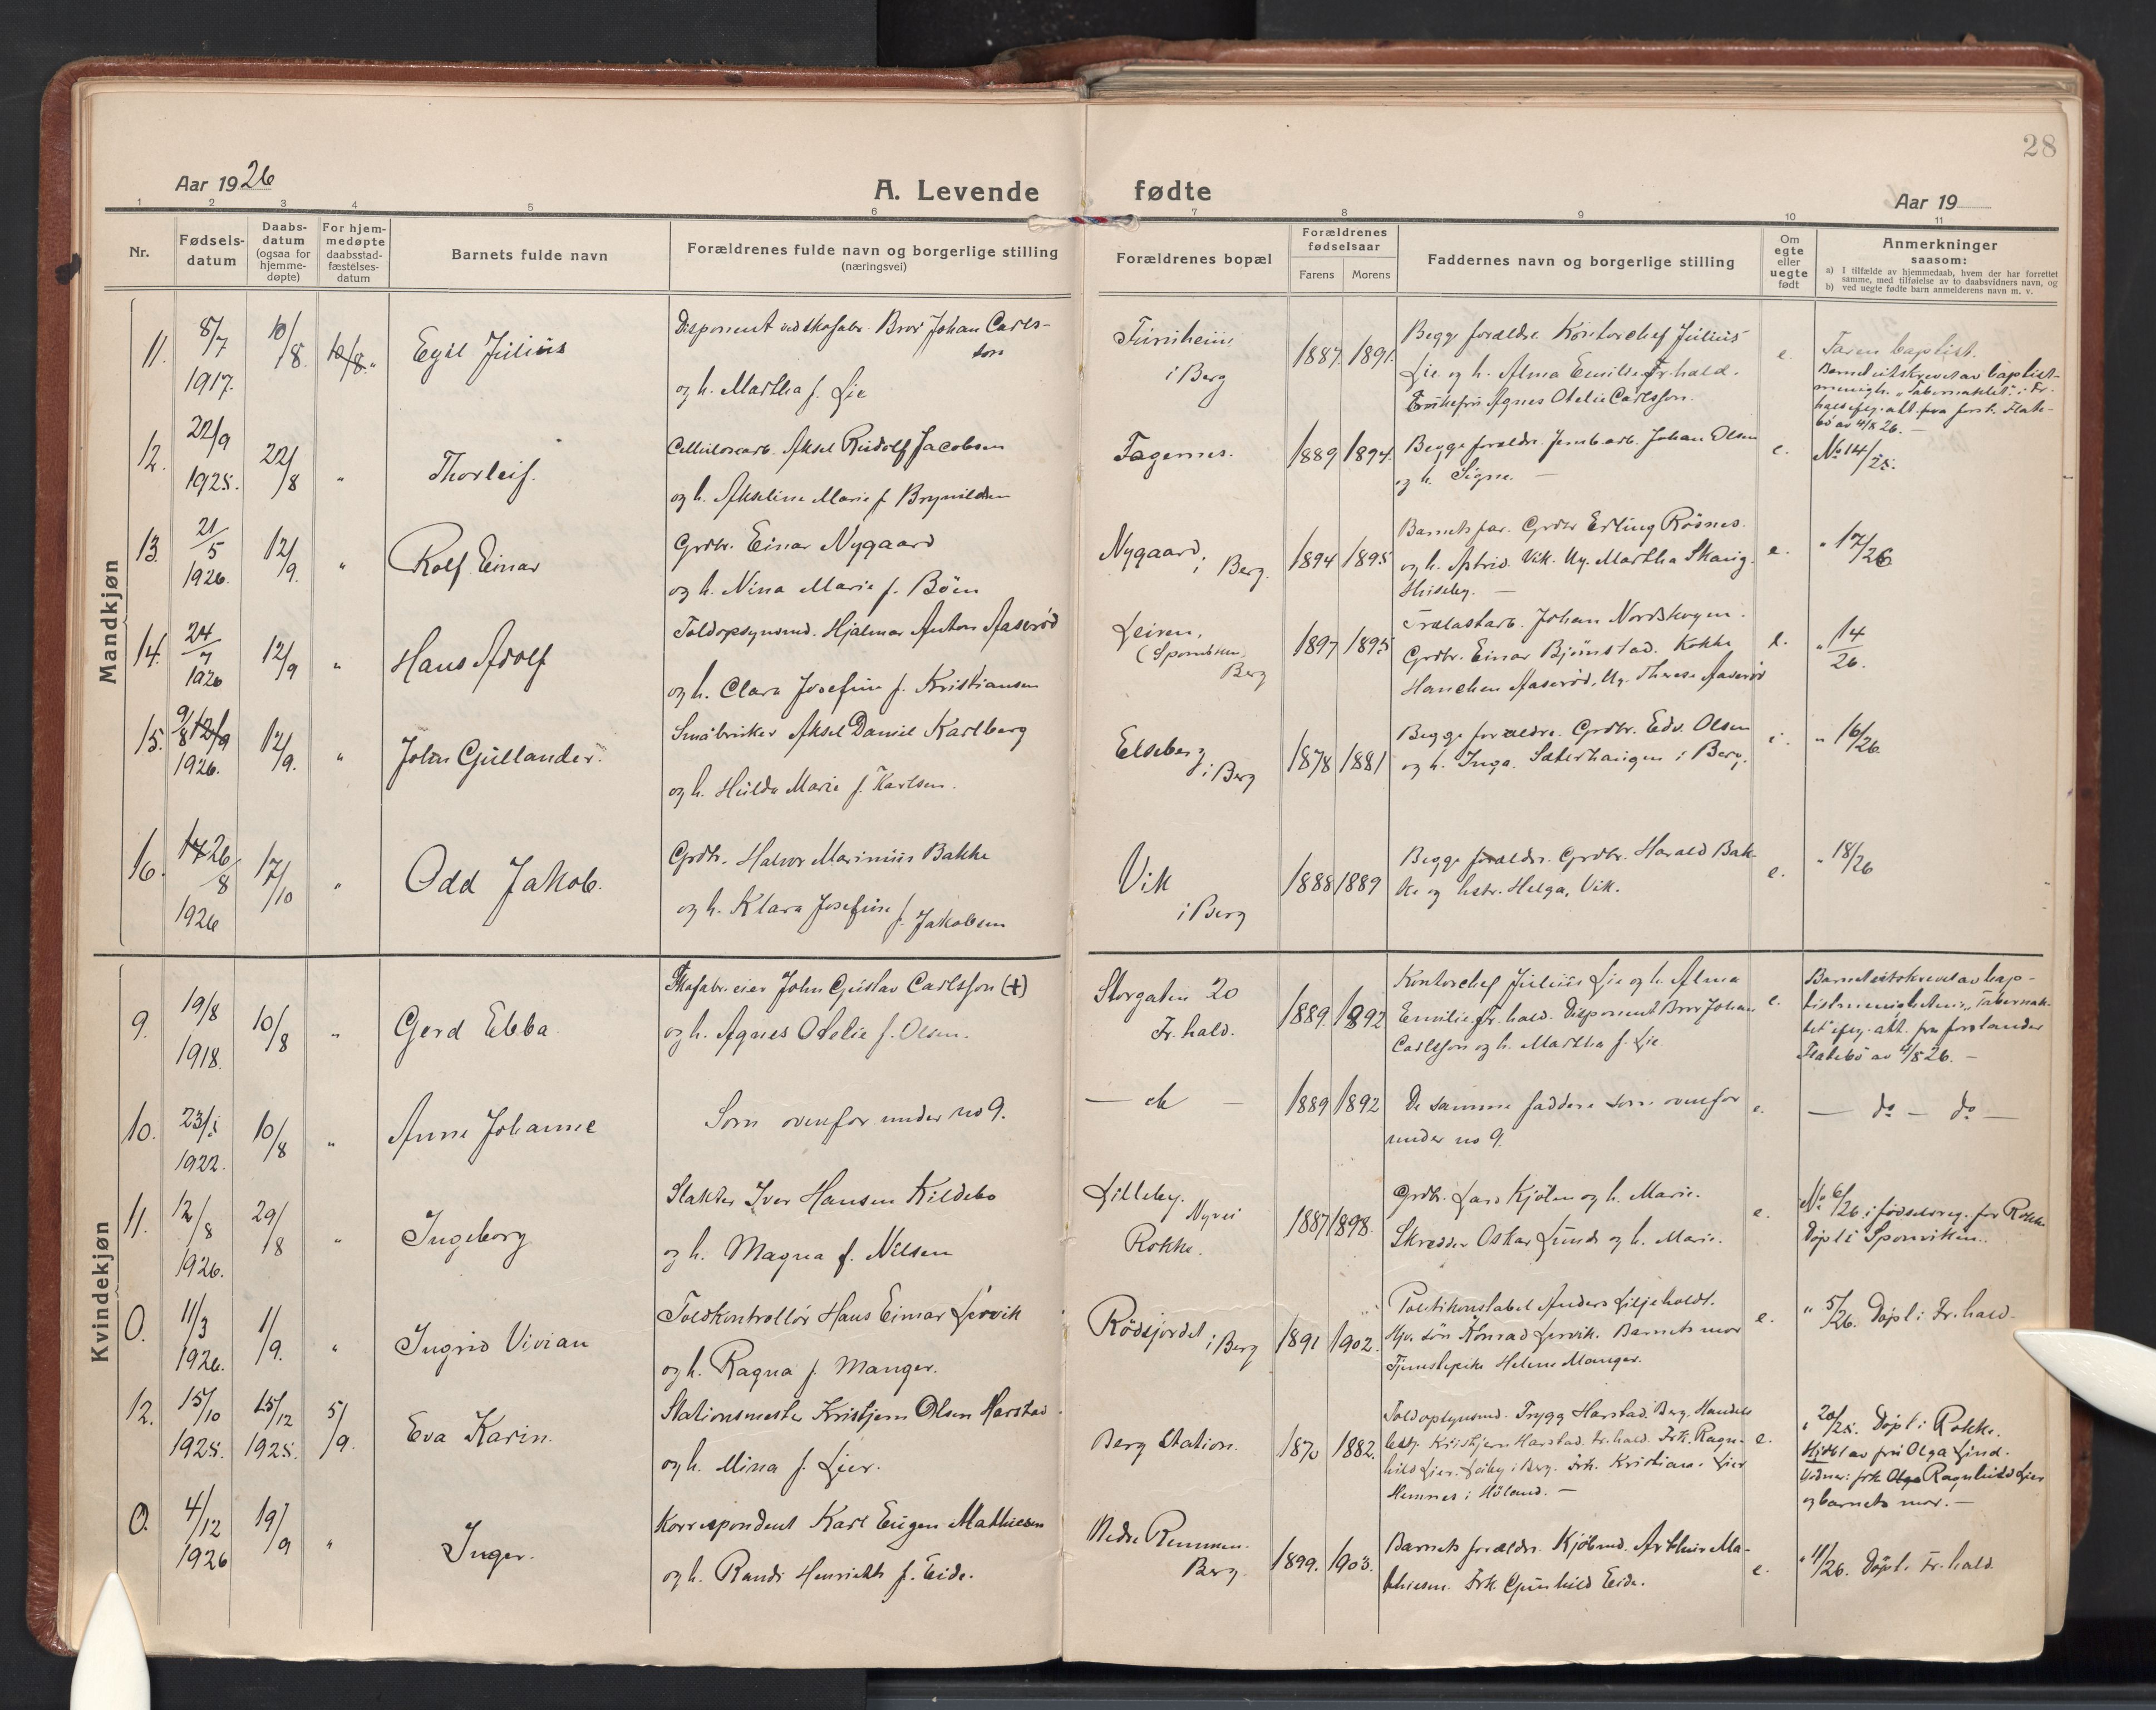 28
Aar 1926
A. Levende fødte
Aar 19
1 2 3 4 5 6 7 8 9 10 11
Nr.
Fødsels-
datum
Daabs-
datum
(ogsaa for
hjemme-
døpte)
For hjem-
medøpte
daabsstad-
fæstelses-
datum
Barnets fulde navn
Forældrenes fulde navn og borgerlige stilling
(næringsvei)
Forældrenes bopæl
Forældrenes
fødselsaar
Farens Morens
Faddernes navn og borgerlige stilling
Om
egte
eller
uegte
født
Anmerkninger
saasom:
a) I tilfælde av hjemmedaab, hvem der har forrettet
samme, med tilføielse av to daabsvidners navn, og
b) ved uegte fødte barn anmelderens navn m. v.
Mandkjøn
11. 8/7 1917. 10/8. 10/8. "
Egil Julius
Disponent ved skofabr. Bror Johan Carls-
son
og h. Martha f. Lie
i Berg
1887. 1891.
Begge forældre. Kontorchef Julius
Lie og h. Alma Emilie Fr.hald.
Enkefru Agnes Otelie Carlsson.
e.
Faren baptist.
Barnet utskrevet av baptist-
menigh. "Tabernaklet" i Fr.
hald efg. att. fra forst. Flate-
bö av 4/8 26. —
12. 22/9 1925. 22/8 "
Thorleif.
Cellulosearb. Aksel Rudolf Jacobsen
og h. Akseline Marie f. Brynildsen
Fagernes.
1889 1894.
Begge forældre. Jernb.arb. Johan Olsen
og h. Signe. —
e.
No 14/25.
13. 21/5 1926. 12/9. "
Rolf Einar
Grdbr. Einar Nygaard
og h. Nina Marie f. Böen
Nygaard, i Berg.
1894 1895
Barnets far. Grdbr Erling Rösnes.
og h. Astrid. Vik. Ug. Martha Skaug-
Huseby. —
e.
" 17/26
14. 24/7 1926 12/9 "
Hans Adolf
Toldopsynsmd. Hjalmar Anton Aaserød
og h. Clara Josefine f. Kristiansen
Leiren,
Berg
1897 1895
Trælastarb. Johan Nordskogen.
Grdbr. Einar Bjørnstad. Kokke
Hanchen Aaserød, Ug. Therese Aaserød
e.
" 14/26.
15. 9/8 12/9 1926. 12/9. "
John Gullander.
Småbruker Aksel Daniel Karlberg
og h. Hulda Marie f. Karlsen.
Elseberg
i Berg
1878 1881
Begge forældre. Grdbr. Edv. Olsen
og h. Inga. Sæterhaugen i Berg.
e.
" 16/26.
16. 17 26/8 1926 17/10 "
Odd Jakob.
Grdbr. Halvor Marinius Bakke
og h. Klara Josefine f. Jakobsen
Vik
i Berg
1888 1889
Begge forældre. Grdbr. Harald Bak-
ke og hstr. Helga, Vik.
e.
" 18/26
Kvindekjøn
9. 19/8 1918. 10/8 "
Gerd Ebba
Skofabr.eier John Gustav Carlsson (+)
og h. Agnes Otelie f. Olsen.
Storgaten 20
Fr.hald.
1889. 1892
Kontorchef Julius Lie og h. Alma
Emilie, Fr.hald. Disponent Bror Johan
Carlsson og h. Martha f. Lie
e.
Barnet utskrevet av bap-
tistmenigheten i "Tabernak-
let" efg. att. fra forstander
Flatebö av 4/8 26. —
10. 1922. 10/8 "
Anne Johanne
Som ovenfor under no 9.
1889 1892
De samme faddere som ovenfor
under no 9.
e.
— do — do —
11. 12/8 1926. 29/8 "
Ingeborg
Slakter Iver Hansen Kildebo
og h. Magna f. Nilsen
Lilleby.
Nyvei
Rokke.
1887 1898.
Grdbr. Lars Kjölen og h. Marie.
Skrædder Oskar Lunds og h. Marie.
e.
No 6/26 i födselsreg. for Rokke
Döpt i Sponviken.
0. 11/3 1926. 1/9. "
Ingrid Vivian
Toldkontrollør Hans Einar Lervik
og h. Ragna f. Manger.
Rödsjordet i Berg
1891 1902.
Politikonstabel Anders Liljeholdt.
Hjv. sön Konrad Lervik. Barnets mor
Tjenestepike Helene Manger.
e.
" 5/26. Döpt i Fr.hald.
12. 15/10 1925. 25/12 1925. 5/9.
Eva Karin.
Stationsmester Kristjern Olsen Harstad
og h. Mina f. Lier.
Berg Station.
1870 1882.
Toldopsynsmd. Trygg Harstad. Berg. Handels
best. Kristjern Harstad. Fr.hald. Frk. Ragn-
hild Lier. Leiby i Berg. Frk. Kristiane Lier
Hemnes i Höland. —
e.
" 20/25. Döpt i Rokke.
Hjdbt av fru Olga Lind.
Vidner: frk Olga Ragnhild Lier
og barnets mor. —
0. 4/12 1926 19/9 "
Inger.
Korrespondent Karl Eugen Mathiesen
og h. Randi Henriette f. Eide.
Nedre Remmen.
Berg.
1899. 1903.
Barnets forældre. Kjöbmd. Arthur Ma-
thiesen. Frk. Gunhild Eide.
e.
" 11/26. Döpt i Fr.hald.